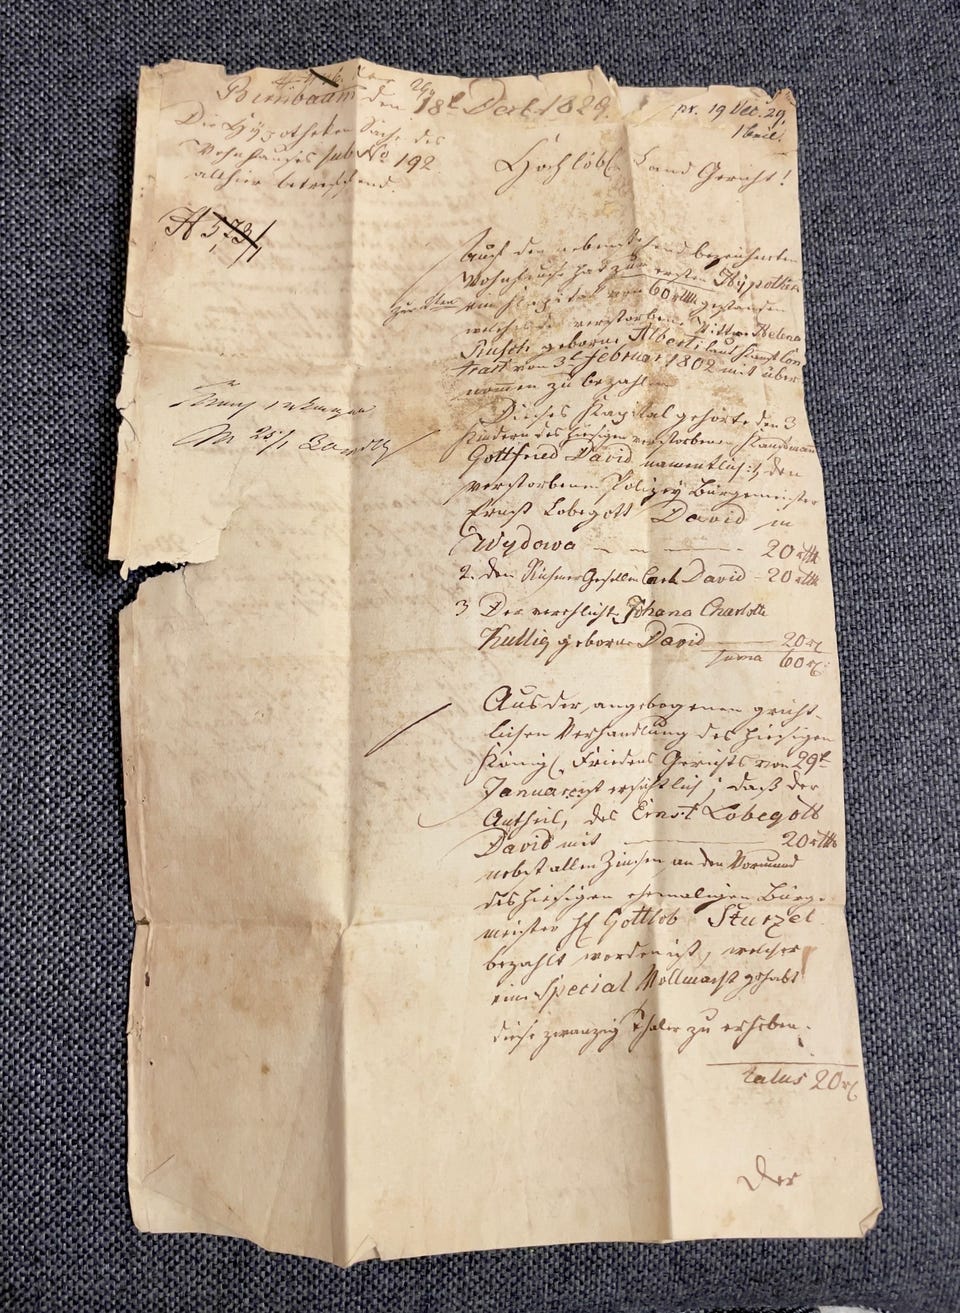 Birnbaum den 18t Decb. 1829.
pr. 19 Dec. 29.
1 Beil.
Die Hypotheken Sache des
Wohnhauses sub No 192
allhier betreffend.
Hochlöbl. Land Gericht!
Auf den nebenstehend bezeichneten
Wohnhause hat zur ersten Hypothek
ein Kapital von 60 rthl gestanden
welches die verstorbene Wittwe Helena
Rusch geborne Alberti laut Kauf Con
tract vom 3t Februar 1802 mit über
nommen zu bezahlen
Dieses Kapital gehörte den 3
Kindern des hiesigen verstorbenen
Gottfried David namentlich: 1, den
verstorbenen Polizey Bürgermeister
Ernst Lobegott David in
Wydowa 20 rthl
2. den Gesellen Carl David - 20 rthl
3 Der verehlichte Johana Charlotte
Kullig geborne David 20 rtl
Suma 60 rtl:
Aus der angebogenen gericht-
lichen Verhandlung des hiesigen
Königl. Friedens Gerichts vom 29t
Januar ist ersichtlich, daß der
Antheil, des Ernst Lobegott
David mit 20 rthl
nebst allen Zinsen an den Vormund
des hiesigen ehemaligen Bürge-
meister H. Gottlob Sturzel
bezahlt worden ist, welcher
eine Special Vollmacht gehabt
diese zwanzig Thaler zu erheben.
Latus 20 rtl
Der